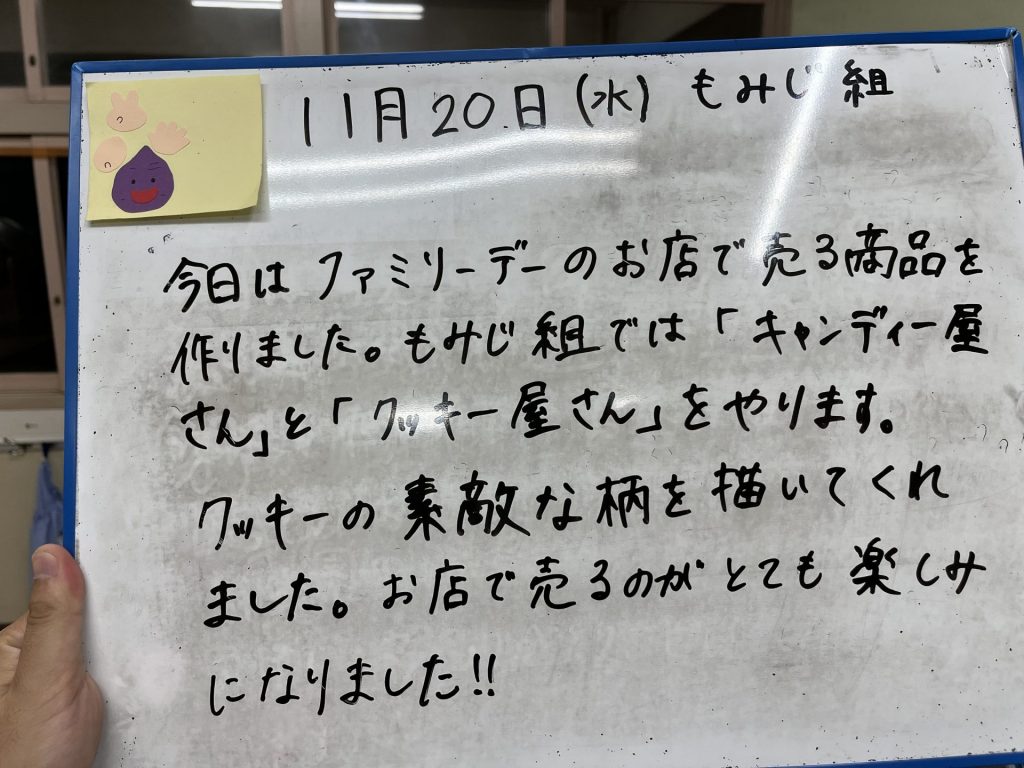 11月20日(水) もみじ組
今日はファミリーデーのお店で売る商品を
作りました。もみじ組では「キャンディー屋
さん」と「クッキー屋さん」をやります。
クッキーの素敵な柄を描いてくれ
ました。お店で売るのがとても楽しみ
になりました!!